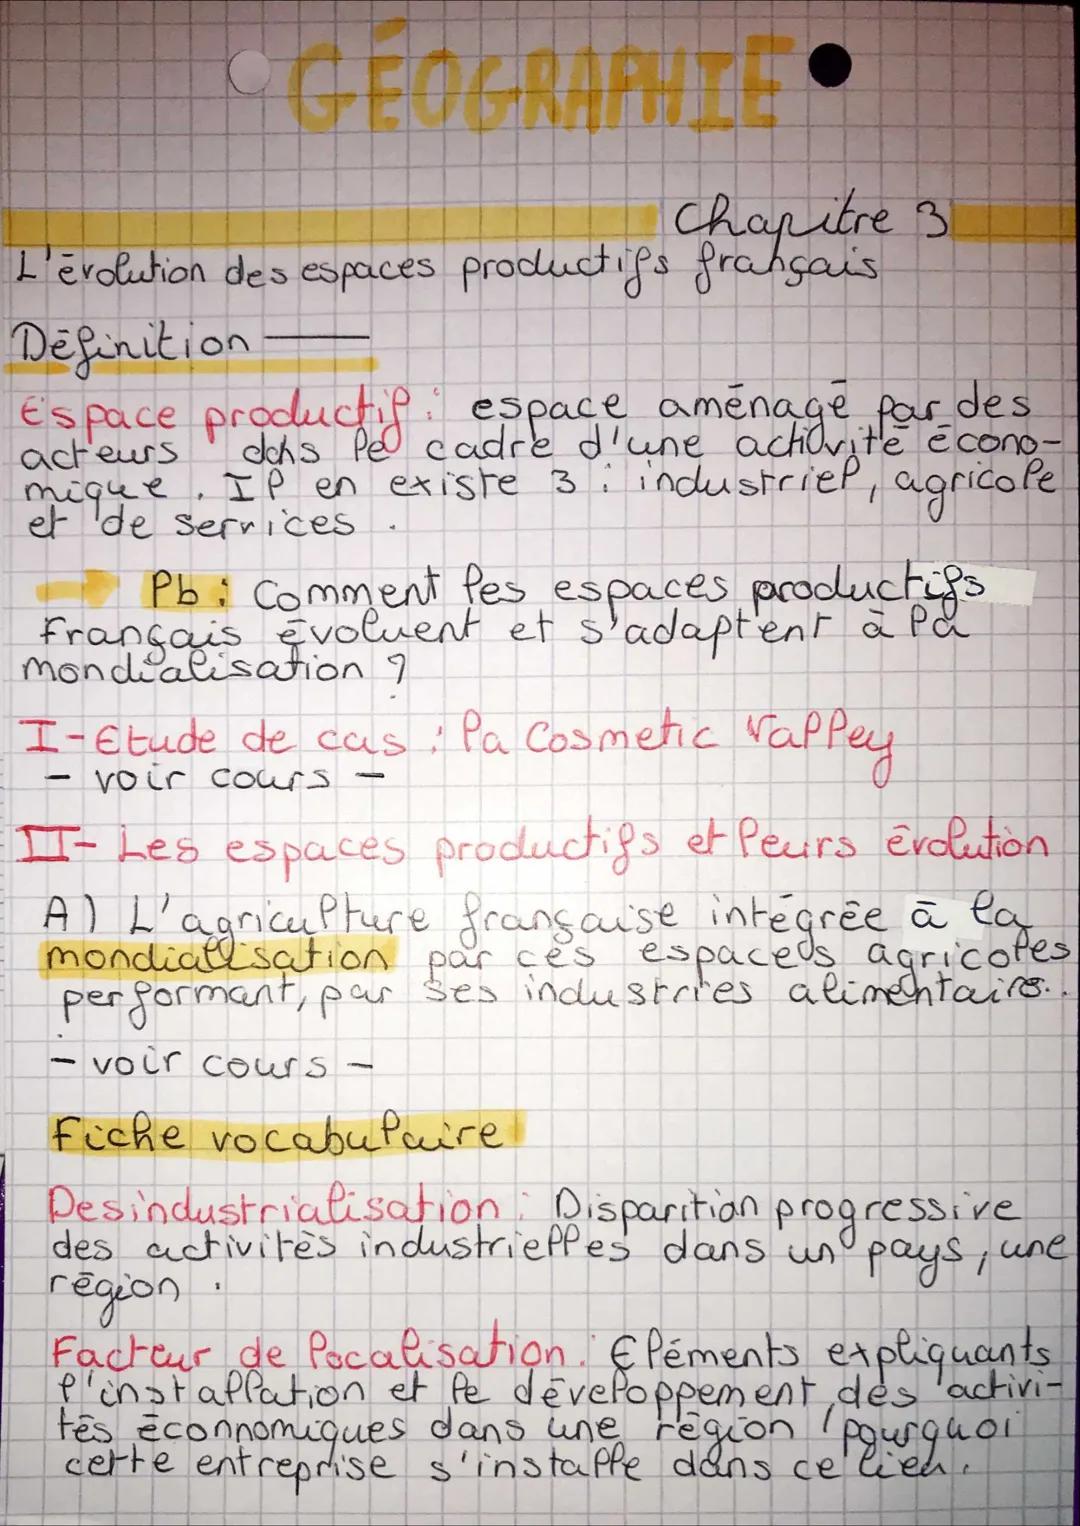 GÉOGRAPHIE
Chapitre 3
L'évolution des espaces productifs français
Définition
Espace productif : espace aménagé par des
acteurs dans le cadre d'une activité écono-
mique. Il en existe 3 : industriel, agricole
et de services.
Pb : Comment les espaces productifs
Français évoluent et s'adaptent à la
mondialisation ?
I - Etude de cas : la Cosmetic Valley
- voir cours -
II - Les espaces productifs et leurs évolution
A) L'agriculture française intégrée à la
mondialisation par ces espaces agricoles
performant, par ses industries alimentaire...
- voir cours -
Fiche vocabulaire
Desindustrialisation : Disparition progressive
des activités industrielles dans un pays, une
région.
Facteur de localisation : Eléments expliquants
l'installation et le développement des activi-
tés éconnomiques dans une région (pourquoi
cette entreprise s'installe dans ce lieu.